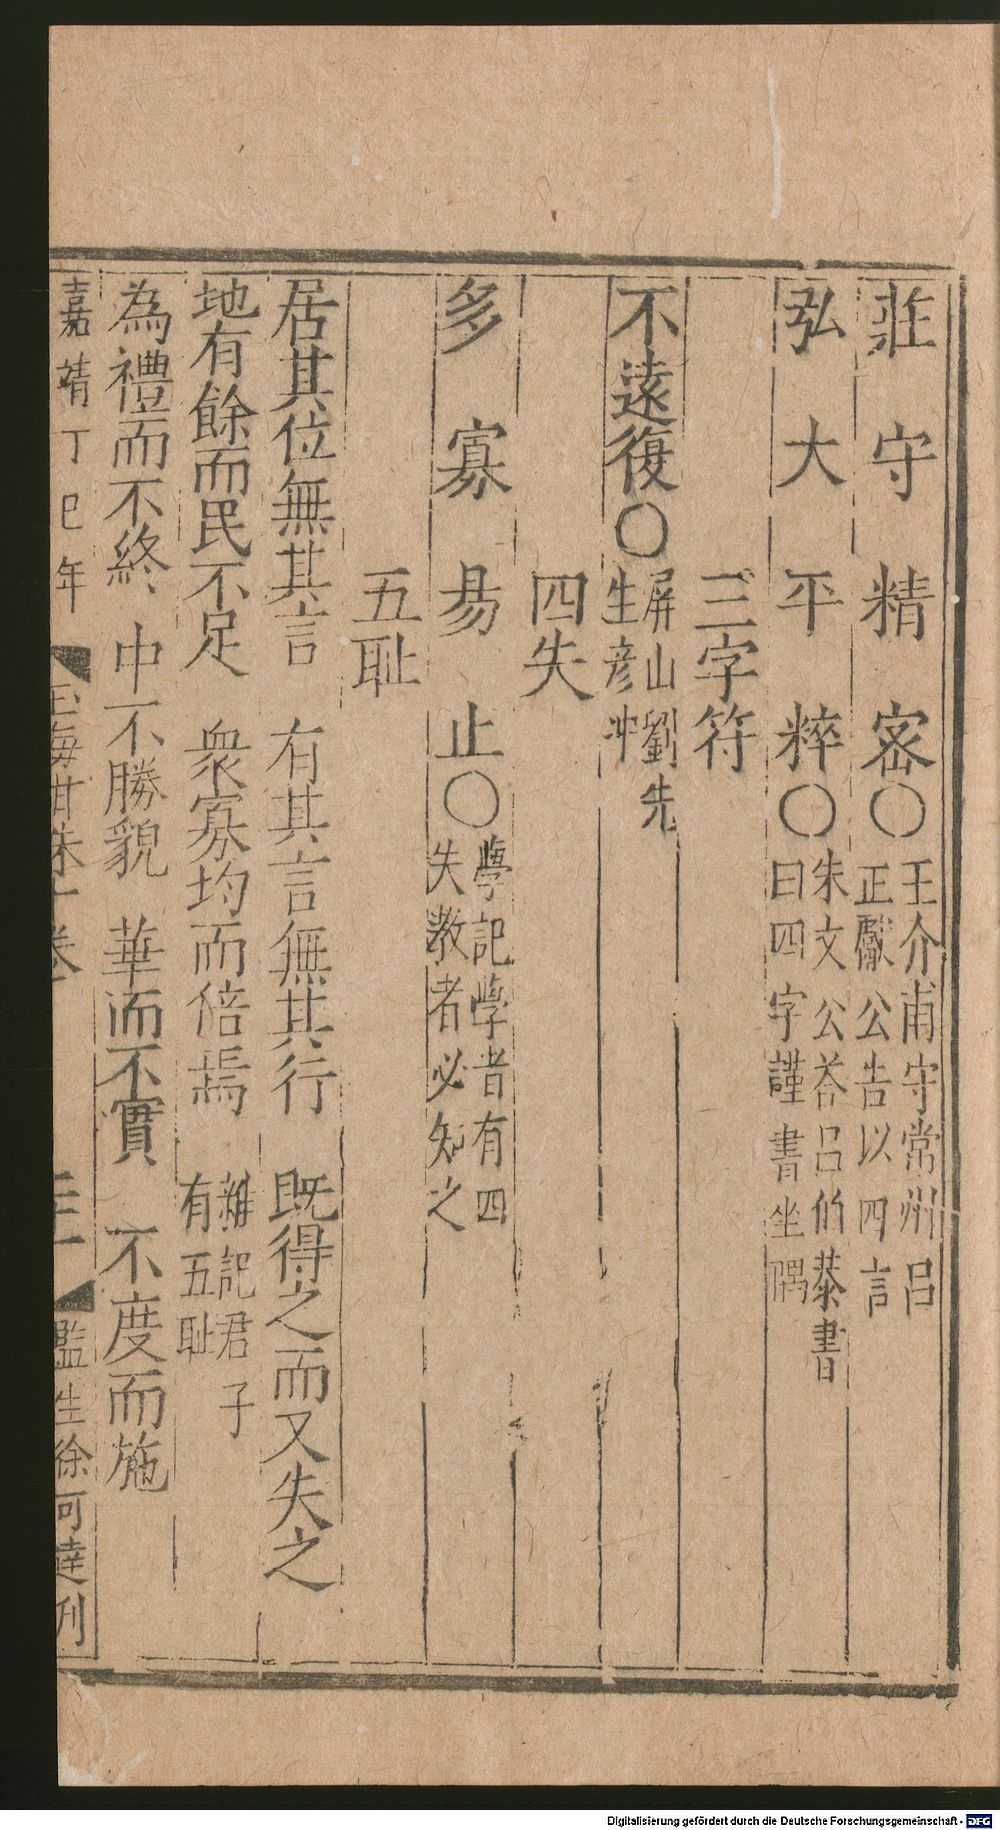 莊守精密〇王介甫守常州呂
正獻公告以四言
弘大平粹〇朱文公荅呂伯恭書
曰四字謹書坐隅
三字符
不遠復〇屏山劉先
生彦冲
四失
多寡易止〇學記學者有四
失教者必知之
五耻
居其位無其言 有其言無其行 既得之而又失之
地有餘而民不足 衆寡均而倍焉 雜記君子
有五耻
為禮而不終 中不勝貌 華而不實 不度而施
嘉靖丁巳年 玉海 卷 監生徐可達刊
Digitalisierung gefördert durch die Deutsche Forschungsgemeinschaft - DFG